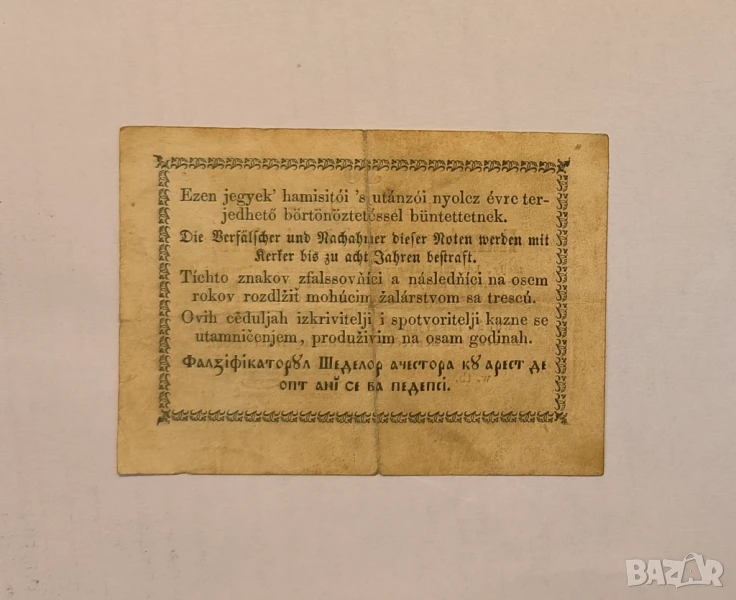 Ezen jegyek' hamisitói 's utánzói nyolcz évre ter-
jedhető börtönöztetéssel büntettetnek.
Die Verfälscher und Nachahmer dieser Noten werden mit
Kerker bis zu acht Jahren bestraft.
Tíchto znakov zfalssovňíci a následňíci na osem
rokov rozdlžiť mohúcim žalárstvom sa trescú.
Ovih cĕduljah izkrivitelji i spotvoritelji kazne se
utamničenjem, produživim na osam godinah.
Фалꙁіфікаторꙋл Шеделор ачестора кꙋ арест де
опт анĭ се ва педепсі.
BAZAR